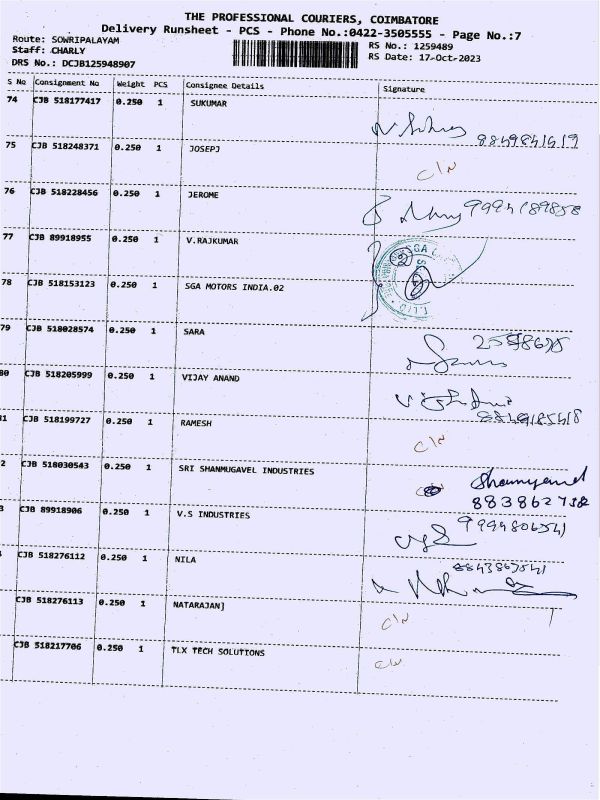 THE PROFESSIONAL COURIERS, COIMBATORE
Delivery Runsheet - PCS - Phone No.:0422-3505555 - Page No.:7
Route: SOWRIPALAYAM
Staff: CHARLY
DRS No.: DCJB125948907
RS No.: 1259489
RS Date: 17-Oct-2023
S No Consignment No Weight PCS Consignee Details Signature
74 CJB 518177417 0.250 1 SUKUMAR
75 CJB 518248371 0.250 1 JOSEPJ
76 CJB 518228456 0.250 1 JEROME
77 CJB 89918955 0.250 1 V.RAJKUMAR
78 CJB 518153123 0.250 1 SGA MOTORS INDIA.02
79 CJB 518028574 0.250 1 SARA
80 CJB 518205999 0.250 1 VIJAY ANAND
CJB 518199727 0.250 1 RAMESH
2 CJB 518030543 0.250 1 SRI SHANMUGAVEL INDUSTRIES
3 CJB 89918906 0.250 1 V.S INDUSTRIES 9994806541
CJB 518276112 0.250 1 NILA
CJB 518276113 0.250 1 NATARAJAN]
CJB 518217706 0.250 1 TLX TECH SOLUTIONS